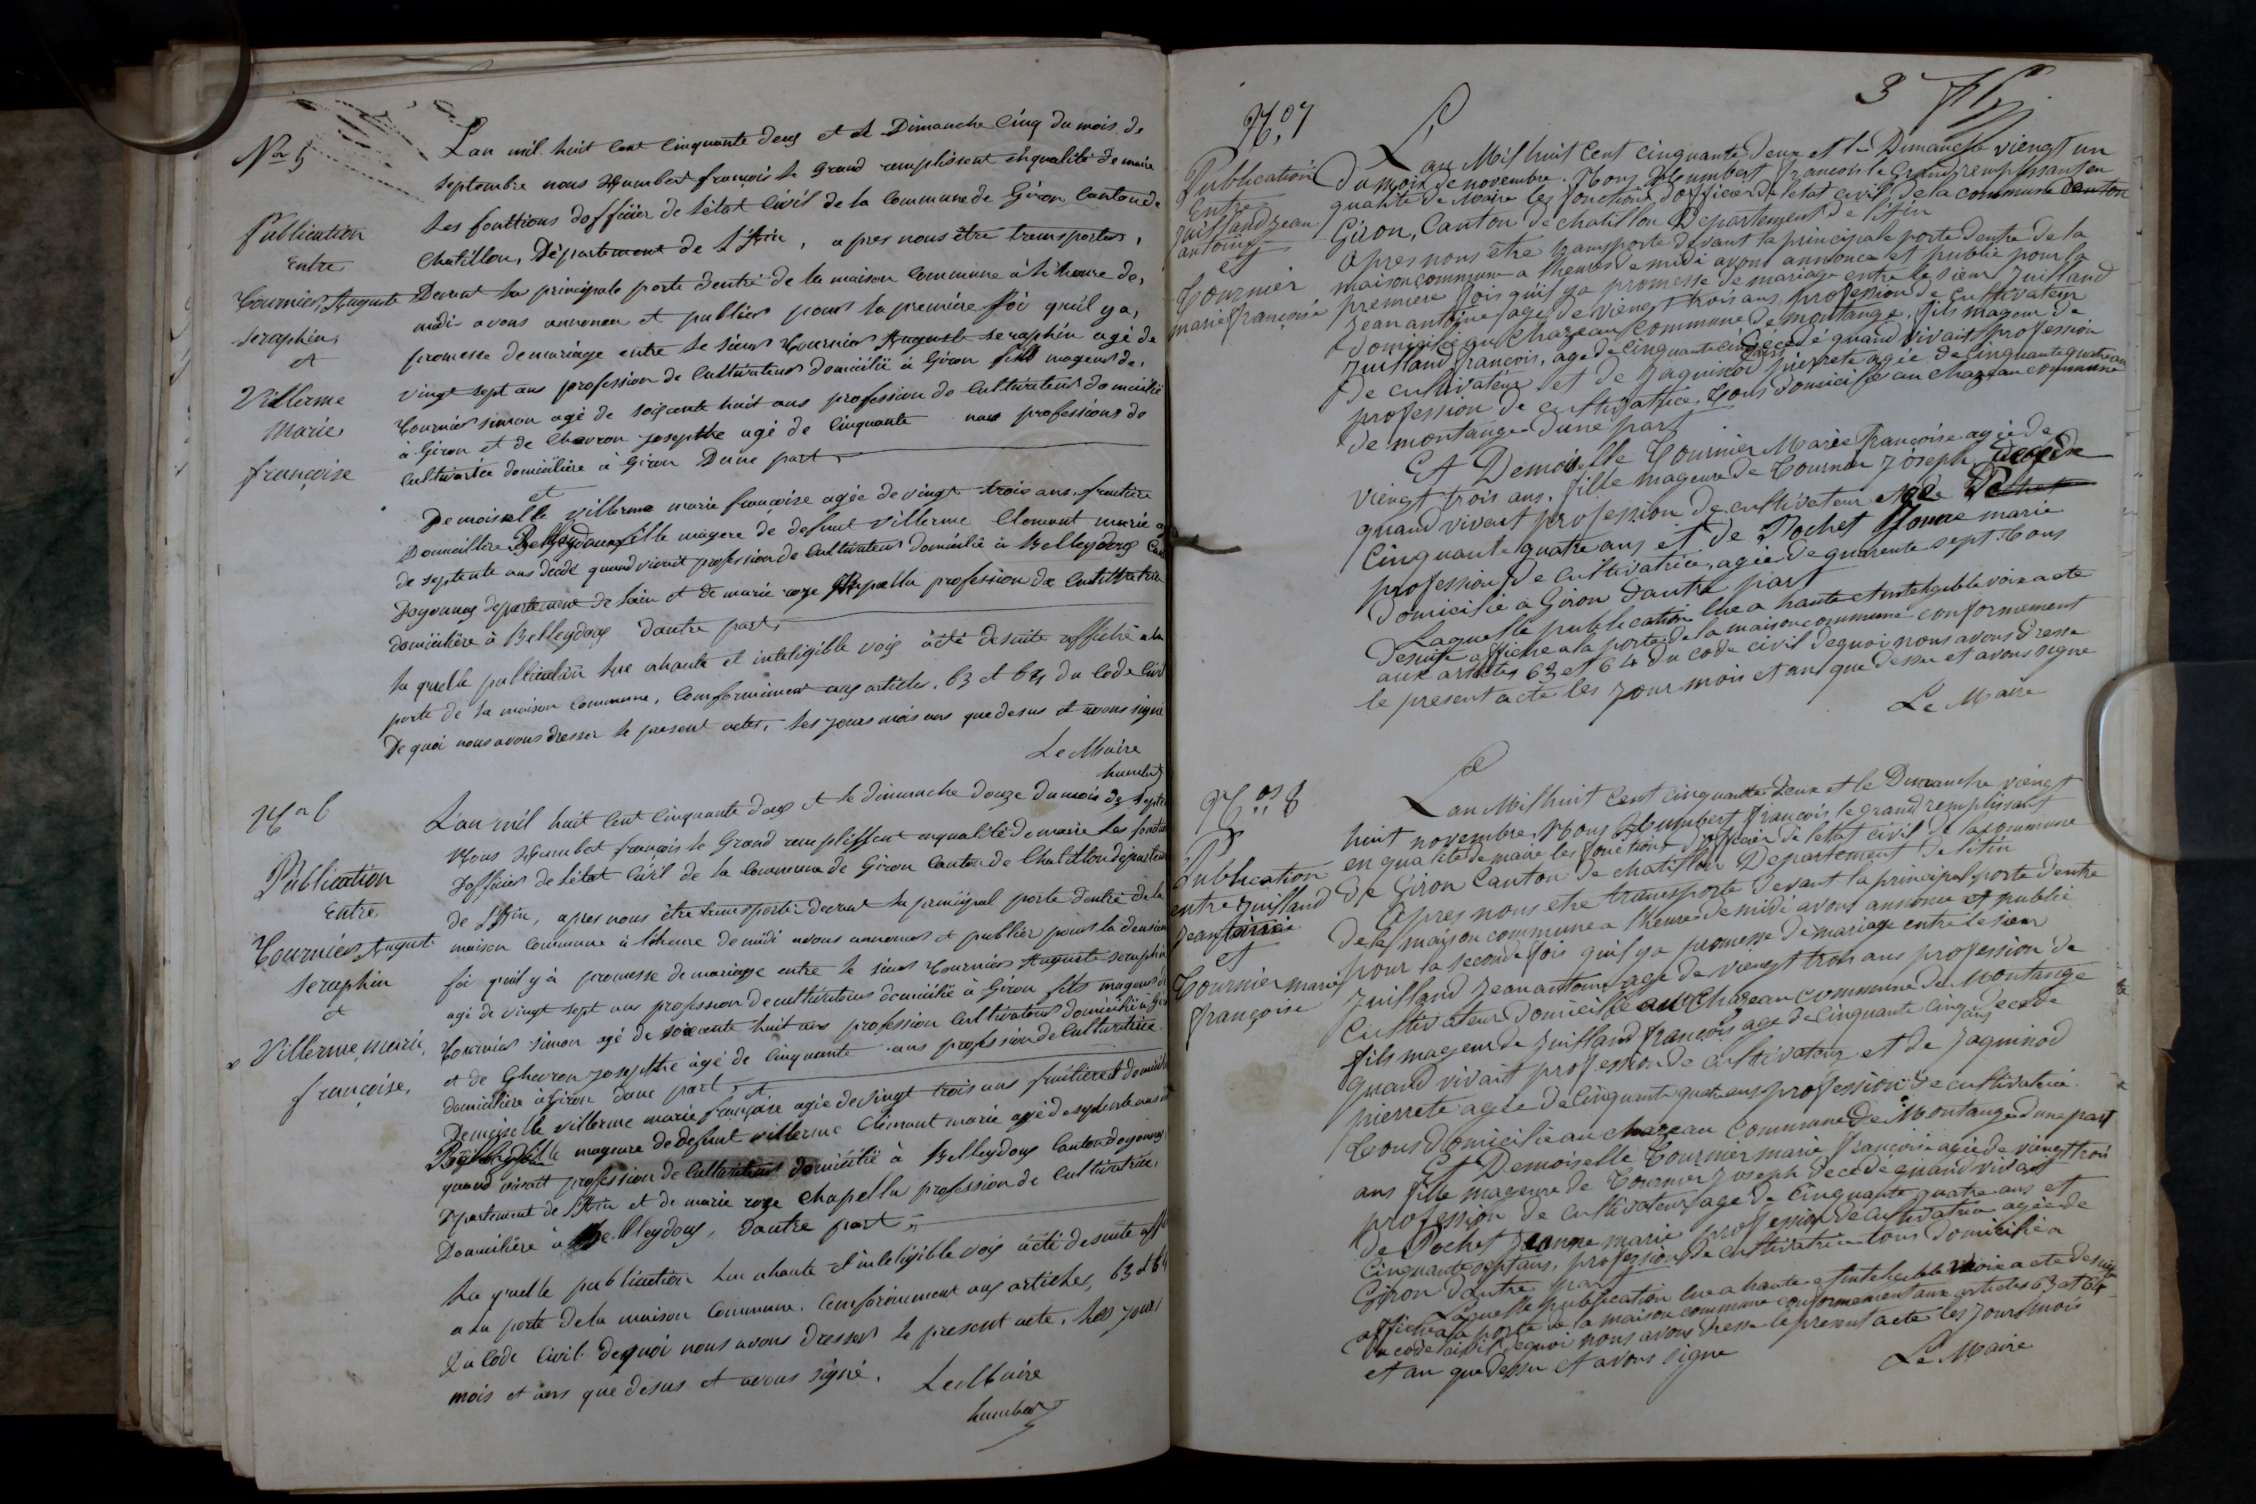 No 5
Publication
Entre
Tournier Auguste
seraphin
et
Villerme
Marie
françoise
L'an mil huit Cent Cinquante deux et le Dimanche Cinq du mois de
septembre nous Humbert françois le Grand remplissent enqualité de maire
Les fonttions dofficier de l'état Civil de la Commune de Giron Canton de
Chatillon, Département de L'Ain, apres nous être transporter,
Devant la principale porte dentré de la maison Commune à l'heure de,
midi avons annoncer et publier pour la premiére foi quil ya,
promesse de mariage entre le sieur Tournier Auguste seraphin agé de
vingt sept ans profession de Cultivateur domicilié à Giron fils mageur de,
Tournier simon agé de soixante huit ans profession de Cultivateur domicilié
à Giron et de Chevron josepthe agé de Cinquante ans professions de
Cultivatrice domicilière à Giron Dune part
et
Demoiselle villerme marie francoise agée de vingt trois ans, fruitiere
Domicilière Belleydoux fille magere de defunt villerme Clement marie
de septente ans décédé quand vivait profession de Cultivateur domicilié à Belleydoux
Doyonnax departement de lain et de marie roze Chapella profession de Cultivatrice
domicilière à Belleydoux dautre part
La quelle publication lue ahaute et inteligible voix àété desuite affiché a la
porte de la maison Commune, Conformément aux articles, 63 et 64 du Code Civil
De quoi nous avons dresser le present acte, les jours mois ans que desus et avons signé
Le Maire
humbert
No 6
Publication
Entre
Tournier Auguste
seraphin
et
Villerme marie,
françoise,
L'an mil huit Cent Cinquante deux et le dimanche douze du mois de septe
Nous Humbert françois le Grand remplissent enqualité de maire Les fonction
Dofficier de l'état Civil de la Commune de Giron Canton de Chatillon départem
de L'Ain, apres nous être transporter devant la principal porte dentré de la
maison Commune à l'heure de midi avons annoncer et publier pour la deuxieme
foi quil y à promesse de mariage entre le sieur Tournier Auguste seraphin
agé de vingt sept ans profession de cultivateur domicilié à Giron fils mageur de
Tournier simon agé de soixante huit ans profession Cultivateur domicilié à Giron
et de Chevron josepthe âgé de Cinquante ans profession de Cultivatrice
domicilière à Giron dune part, et
Demoiselle villerme marie françoise agée de vingt trois ans fruitiere domicilié
Belleydoux fille mageure de defunt villerme Clemant marie agé de septente ans
quand vivait profession de Cultivateur domicilié à Belleydoux Canton doyonnax
Departement de L'Ain et de marie roze Chapella profession de Cultivatrice,
Domicilière à Belleydoux, dautre part,
La quelle publication lue ahaute et inteligible voix àété desuite aff
a la porte de la maison Commune. Conformement aux articles, 63 et 64
du Code Civil dequoi nous avons dresser le present acte, les jours
mois et ans que desus et avons signé.
Le Maire
humbert
3
No 7
Publication
Entre
Juilland Jean
antoine
et
Tournier
marie françoise
L'an Mil huit Cent cinquante deux et le Dimanche viengt un
du mois de novembre. Nous Humbert francois le Grand remplissant en
qualité de Maire les fonctions dofficier de létat civil de la commune
Giron, Canton de chatillon Departement de l'Ain
Apres nous etre transporte devant la principale porte dentre de la
maison commune a lheure de midi avons annonce et publie pour la
premiere fois quil ya promesse de mariage entre le sieur Juilland
Jean antoine age de viengt trois ans profession de cultivateur
domicilié au Chazeau commune de montange, fils mageur de
Juilland francois, age de cinquante cinq ans décédé quand vivait profession
de cultivateur et de Jaquinod pierrete agée de cinquante quatre ans
profession de cultivatrice, tous domicilié au chazeau commune
de montange dune part
Et Demoiselle Tournier Marie francoise agée de
viengt trois ans, fille mageure de Tournier Joseph décédé
quand vivant profession de cultivateur agé de
cinquante quatre ans et de Pochet Jeanne marie
profession de cultivatrice, agée de quarente sept tous
domicilié a Giron dautre part
Laquelle publication lue a haute et inteligible voix a ete
desuite affiché a la porte de la maison commune conformement
aux articles 63 et 64 du code civil dequoi nous avons dresse
le present acte les jour mois et an que dessu et avons signe
Le Maire
No 8
Publication
entre Juilland
Jean antoine
et
Tournier marie
françoise
L'an Mil huit Cent cinquante deux et le Dimanche viengt
huit novembre. Nous Humbert françois le grand remplissant
en qualité de maire les fonctions dofficier de létat civil de la commune
de Giron Canton de chatillon Departement de l'Ain
Apres nous etre transporte devant la principal porte dentre
de la maison commune a lheure de midi avons annonce et publié
pour la seconde fois quil ya promesse de mariage entre le sieur
Juilland Jean antoine age de viengt trois ans profession de
Cultivateur domicilié au Chazeau commune de Montange
fils mageur de Juilland francois age de cinquante cinq ans décédé
quand vivait profession de cultivateur et de Jaquinod
pierrete agée de cinquante quatre ans profession de cultivatrice.
tous domicilié au chazeau commune de Montange dune part
Et Demoiselle Tournier marie francoise agée de viengt trois
ans fille mageure de Tournier Joseph decede quand vivant
profession de cultivateur age de cinquante quatre ans et
de Pochet Jeanne marie profession de cultivatrice agée de
cinquante sept ans, profession de cultivatrice tous domicilié a
Giron dautre part
Laquelle publication lue a haute et inteligible voix a ete desuite
affiché a la porte de la maison commune conformement aux articles 63 et 64
du code civil, dequoi nous avons dresse le present acte les jour mois
et an que dessu et avons signe
Le Maire